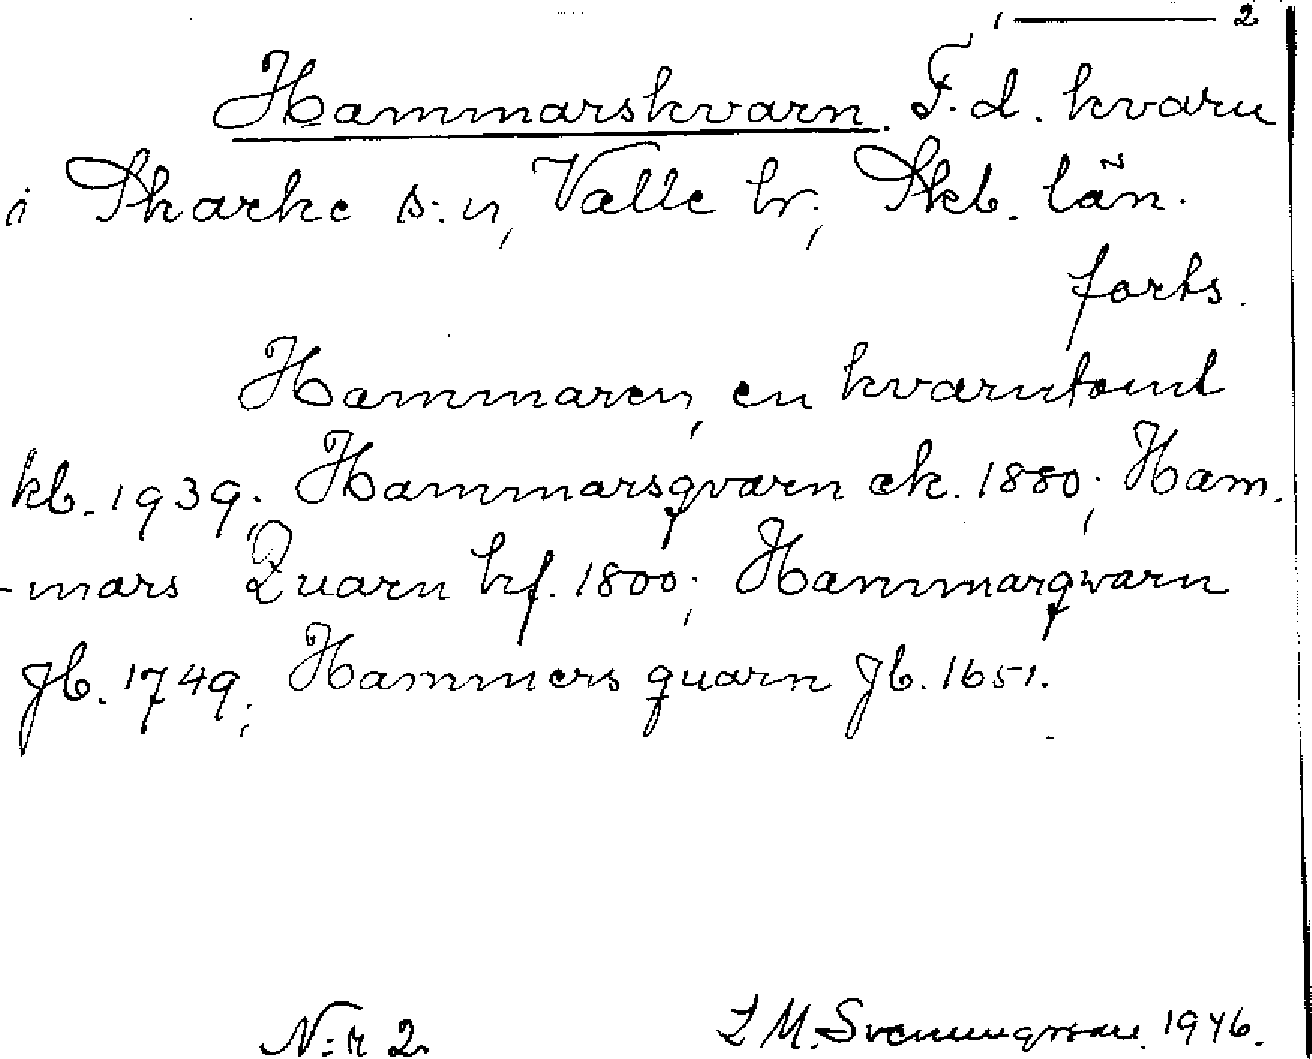 1 — 2
Hammarskvarn. F.d. kvarn
i Skarke s:n, Valle hr; Skb. län.
forts.
Hammaren, en kvarntomt
kb. 1939; Hammarsqvarn ek. 1880; Ham-
-mars Quarn hf. 1800; Hammarqwarn
Jb. 1749; Hammers quarn Jb. 1651.
N:r 2. L M. Svenungsson. 1946.